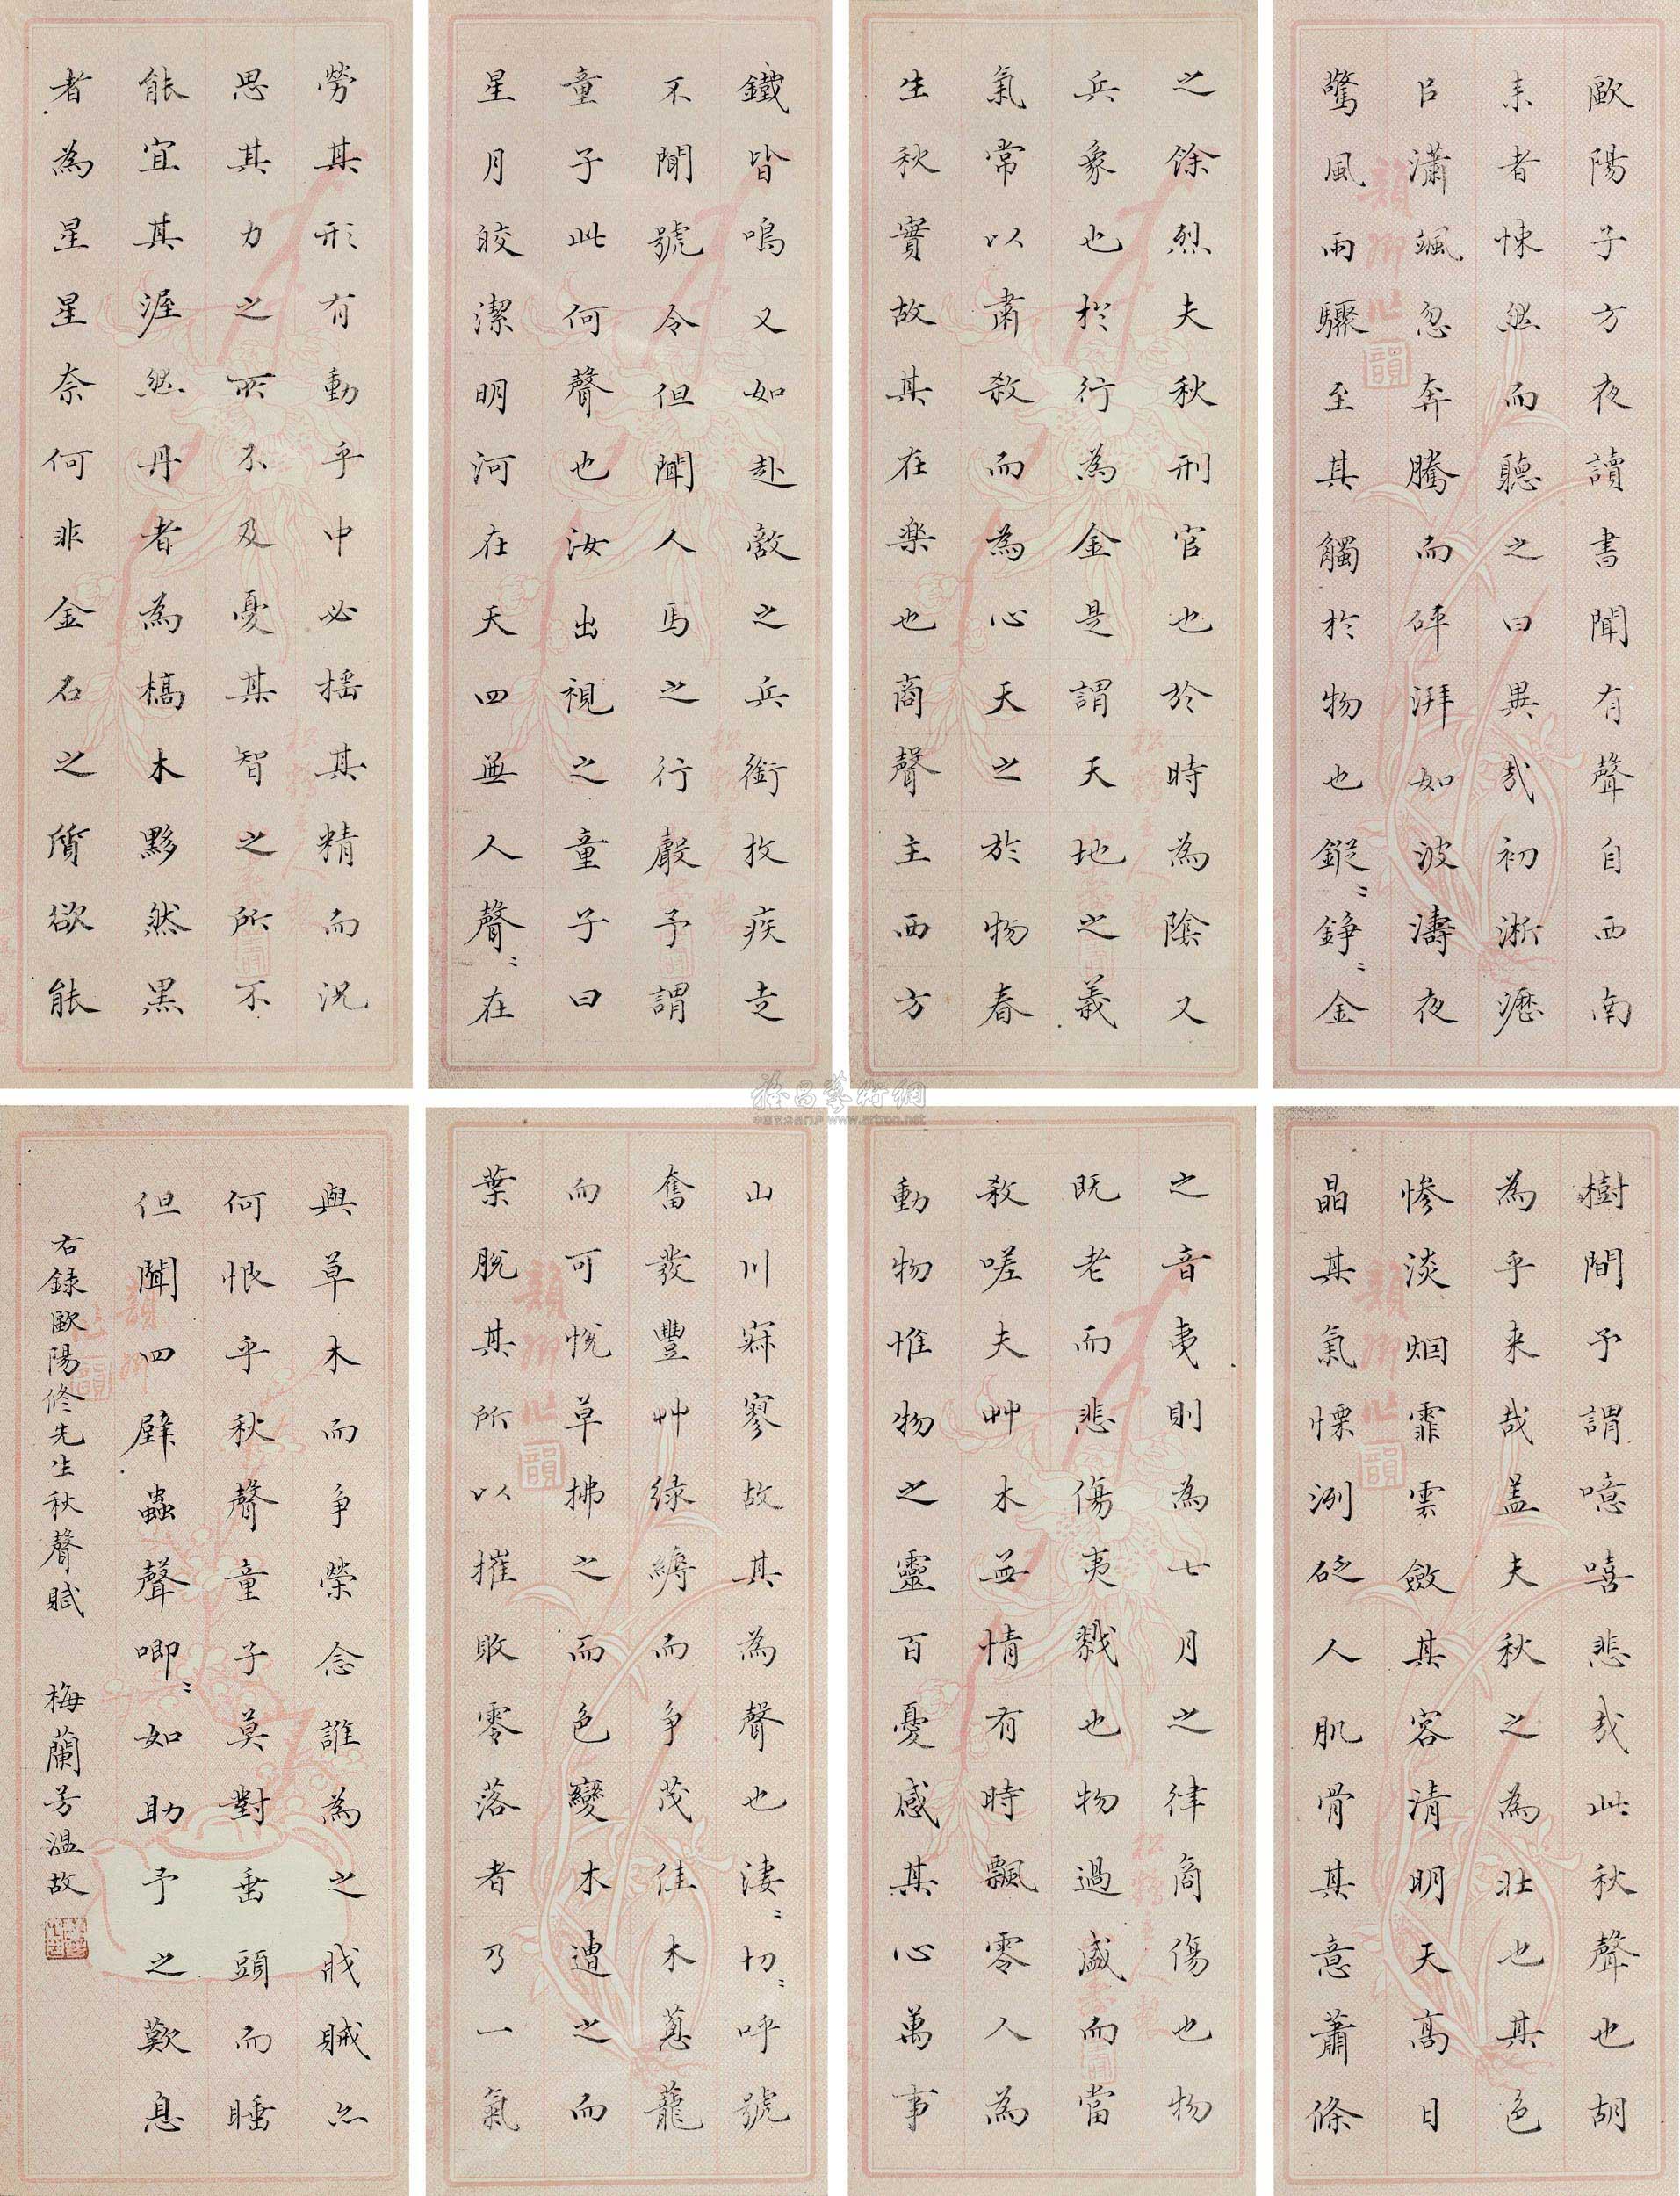 歐陽子方夜讀書聞有聲自西南
来者悚然而聽之曰異哉初淅瀝
以瀟颯忽奔騰而砰湃如波濤夜
驚風雨驟至其觸於物也鏦〻錚〻金
鐵皆鳴又如赴敵之兵銜枚疾走
不聞號令但聞人馬之行聲予謂
童子此何聲也汝出視之童子曰
星月皎潔明河在天四無人聲〻在
樹間予謂噫嘻悲哉此秋聲也胡
為乎来哉盖夫秋之為壯也其色
慘淡烟霏雲斂其容清明天高日
晶其氣慄洌砭人肌骨其意蕭條
山川寂寥故其為聲也淒〻切〻呼號
奮發豐艸綠縟而争茂佳木蔥蘢
而可悅草拂之而色變木遭之而
葉脫其所以摧敗零落者乃一氣
之餘烈夫秋刑官也於時為陰又
兵象也於行為金是謂天地之義
氣常以肅殺而為心天之於物春
生秋實故其在楽也商聲主西方
之音夷則為七月之律商傷也物
既老而悲傷夷戮也物過盛而當
殺嗟夫艸木無情有時飄零人為
動物惟物之靈百憂感其心萬事
勞其形有動乎中必搖其精而況
思其力之所不及憂其智之所不
能宜其渥然丹者為槁木黟然黑
者為星星奈何非金石之質欲能
與草木而争榮念誰為之戕賊亦
何恨乎秋聲童子莫對垂頭而睡
但聞四壁蟲聲唧〻如助予之歎息
右録歐陽修先生秋聲賦 梅蘭芳溫故